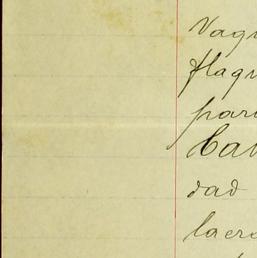 Vagu
flagr
pari
Cau
dad
lacra